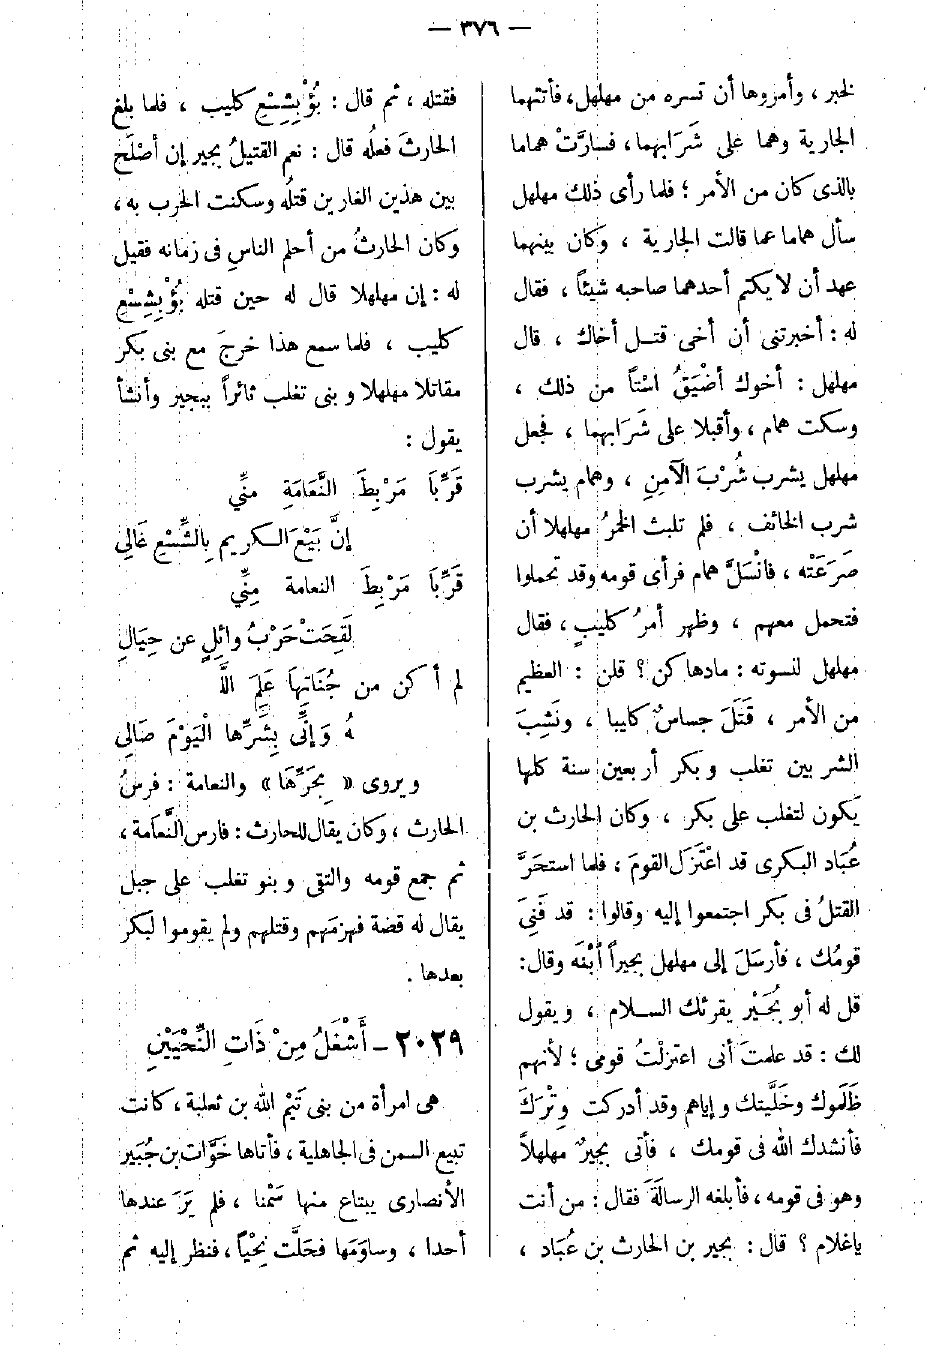 — ٣٧٦ —
الخبر ، وأمروها أن تسره من مهلهل، فأتتهما
الجارية وهما على شَرَابهما، فسارَّتْ هماما
بالذى كان من الأمر ؛ فلما رأى ذلك مهلهل
سأل هماما عما قالت الجارية ، وكان بينهما
عهد أن لا يكتم أحدهما صاحبه شيئاً ، فقال
له : أخبرتنى أن أخى قتـل أخاك ، قال
مهلهل : أخوك أضْيَقُ اسْتاً من ذلك ،
وسكت همام ، وأقبلا على شَرَابهما ، فجعل
مهلهل يشرب شُرْبَ الآمنِ ، وهمام يشرب
شرب الخائف ، فلم تلبث الخمرُ مهلهلا أن
صَرَعَتْه ، فانْسَلَّ همام فرأى قومه وقد تحملوا
فتحمل معهم ، وظهر أمرُ كليبٍ ، فقال
مهلهل لنسوته : مادها كن ؟ قلن : العظيم
من الأمر ، قَتَلَ جساسٌ كليبا ، ونَشِبَ
الشر بين تغلب وبكر أربعين سنة كلها
يكون لتغلب على بكر ، وكان الحارث بن
عُبَاد البكرى قد اعْتَزَل القومَ ، فلما استحَرَّ
القتلُ فى بكر اجتمعوا إليه وقالوا : قد فَنِىَ
قومُك ، فأرسَلَ إلى مهلهل بجيراً ابْنَه وقال:
قل له أبو بُجَيْر يقرئك السـلام ، ويقول
لك : قد علمتَ أنى اعتزلْتُ قومى ؛ لأنهم
ظَلَموك وخَلَّيتك وإياهم وقد أدركت وِتْرَكَ
فأنشدك الله فى قومك ، فأتى بجيرٌ مهلهلاً
وهو فى قومه ، فأبلغه الرسالَةَ فقال : من أنت
ياغلام ؟ قال : بجير بن الحارث بن عُبَاد ،
فقتله ، ثم قال : بُؤْبِشِسْعِ كليب ، فلما بلغ
الحارثَ فعلُه قال : نعم القتيلُ بجير إن أصْلَح
بين هذين الغارين قتلُه وسكنت الحرب به ،
وكان الحارثُ من أحلم الناسِ فى زمانه فقيل
له : إن مهلهلا قال له حين قتله بُؤْبِشِسْعِ
كليب ، فلما سمع هذا خرجَ مع بنى بكر
مقاتلا مهلهلا وبنى تغلب ثائراً ببجير وأنشأ
يقول :
قَرِّبَا مَرْبِطَ النَّعَامَةِ مِنِّي
إنَّ بَيْعَ الـكريم بِالشِّسْعِ غَالِي
قَرِّبَا مَرْبِطَ النعامة مِنِّي
لَقِحَتْ حَرْبُ وائِلٍ عن حِيَالِ
لم أكن من جُنَاتِهَا عَلِمَ اللَّـ
ـهُ وَإنِّى بِشَرِّها الْيَوْمَ صَالِى
ويروى « بِحَرِّهَا» والنعامة : فرسُ
الحارث ، وكان يقال للحارث : فارس النَّعَامة ،
ثم جمع قومه والتقى وبنو تغلب على جبل
يقال له قضة فهزمَهم وقتلهم ولم يقوموا لبكر
بعدها .
٢٠٢٩ – أَشْغَلُ مِنْ ذَاتِ النِّحْيَيْنِ
هى امرأة من بنى تَيْمِ الله بن ثعلبة ، كانت
تبيع السمن فى الجاهلية ، فأتاها خَوَّات بن جُبَير
الأنصارى يبتاع منها سَمْنا ، فلم يَرَ عندها
أحدا ، وساوَمَها فحَلَّت نِحْياً ، فنظر إليه ثم